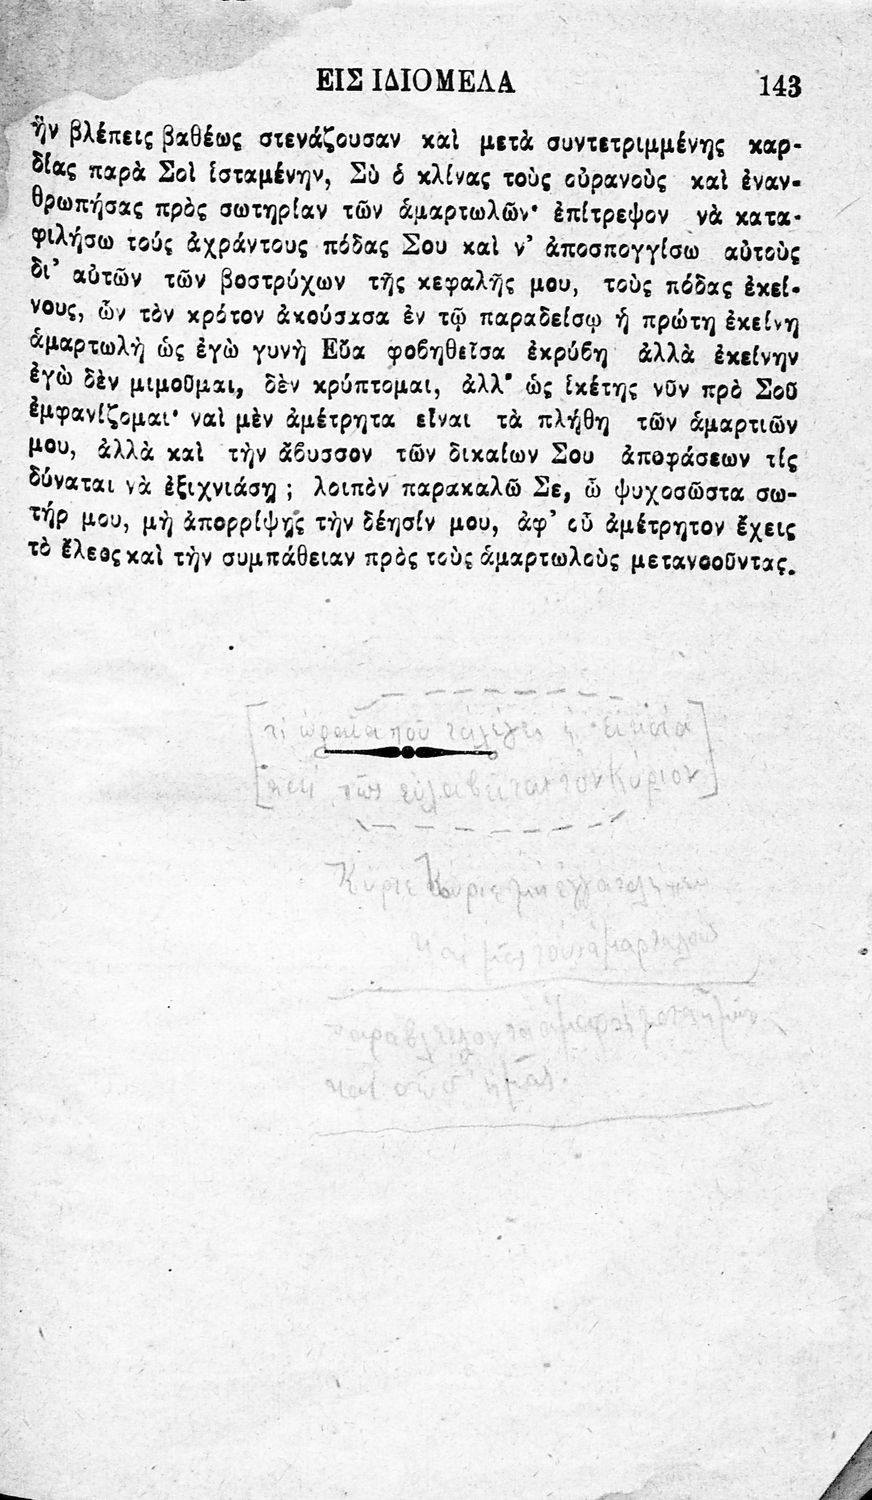 ΕΙΣ ΙΔΙΟΜΕΛΑ 143
ἣν βλέπεις βαθέως στενάζουσαν καὶ μετὰ συντετριμμένης καρ-
δίας παρὰ Σοὶ ἱσταμένην, Σὺ ὁ κλίνας τοὺς οὐρανοὺς καὶ ἐναν-
θρωπήσας πρὸς σωτηρίαν τῶν ἁμαρτωλῶν· ἐπίτρεψον νὰ κατα-
φιλήσω τούς ἀχράντους πόδας Σου καὶ ν’ ἀποσπογγίσω αὐτοὺς
δι’ αὐτῶν τῶν βοστρύχων τῆς κεφαλῆς μου, τοὺς πόδας ἐκεί-
νους, ὧν τὸν κρότον ἀκούσασα ἐν τῷ παραδείσῳ ἡ πρώτη ἐκείνη
ἁμαρτωλὴ ὡς ἐγὼ γυνὴ Εὔα φοβηθεῖσα ἐκρύβη ἀλλὰ ἐκείνην
ἐγὼ δὲν μιμοῦμαι, δὲν κρύπτομαι, ἀλλ’ ὡς ἱκέτης νῦν πρὸ Σοῦ
ἐμφανίζομαι· ναὶ μὲν ἀμέτρητα εἶναι τὰ πλήθη τῶν ἁμαρτιῶν
μου, ἀλλὰ καὶ τὴν ἄβυσσον τῶν δικαίων Σου ἀποφάσεων τίς
δύναται νὰ ἐξιχνιάσῃ ; λοιπὸν παρακαλῶ Σε, ὦ ψυχοσῶστα σω-
τήρ μου, μὴ ἀπορρίψῃς τὴν δέησίν μου, ἀφ’ οὗ ἀμέτρητον ἔχεις
τὸ ἔλεος καὶ τὴν συμπάθειαν πρὸς τοὺς ἁμαρτωλοὺς μετανοοῦντας.
τι ὡραῖα ποῦ τὰ λέγει ἡ
καὶ πῶς εὐλαβεῖται τὸν Κύριον
Κύριε Κύριε μὴ
καὶ μᾶς τοὺς ἁμαρτωλοὺς
καὶ ἡμᾶς.